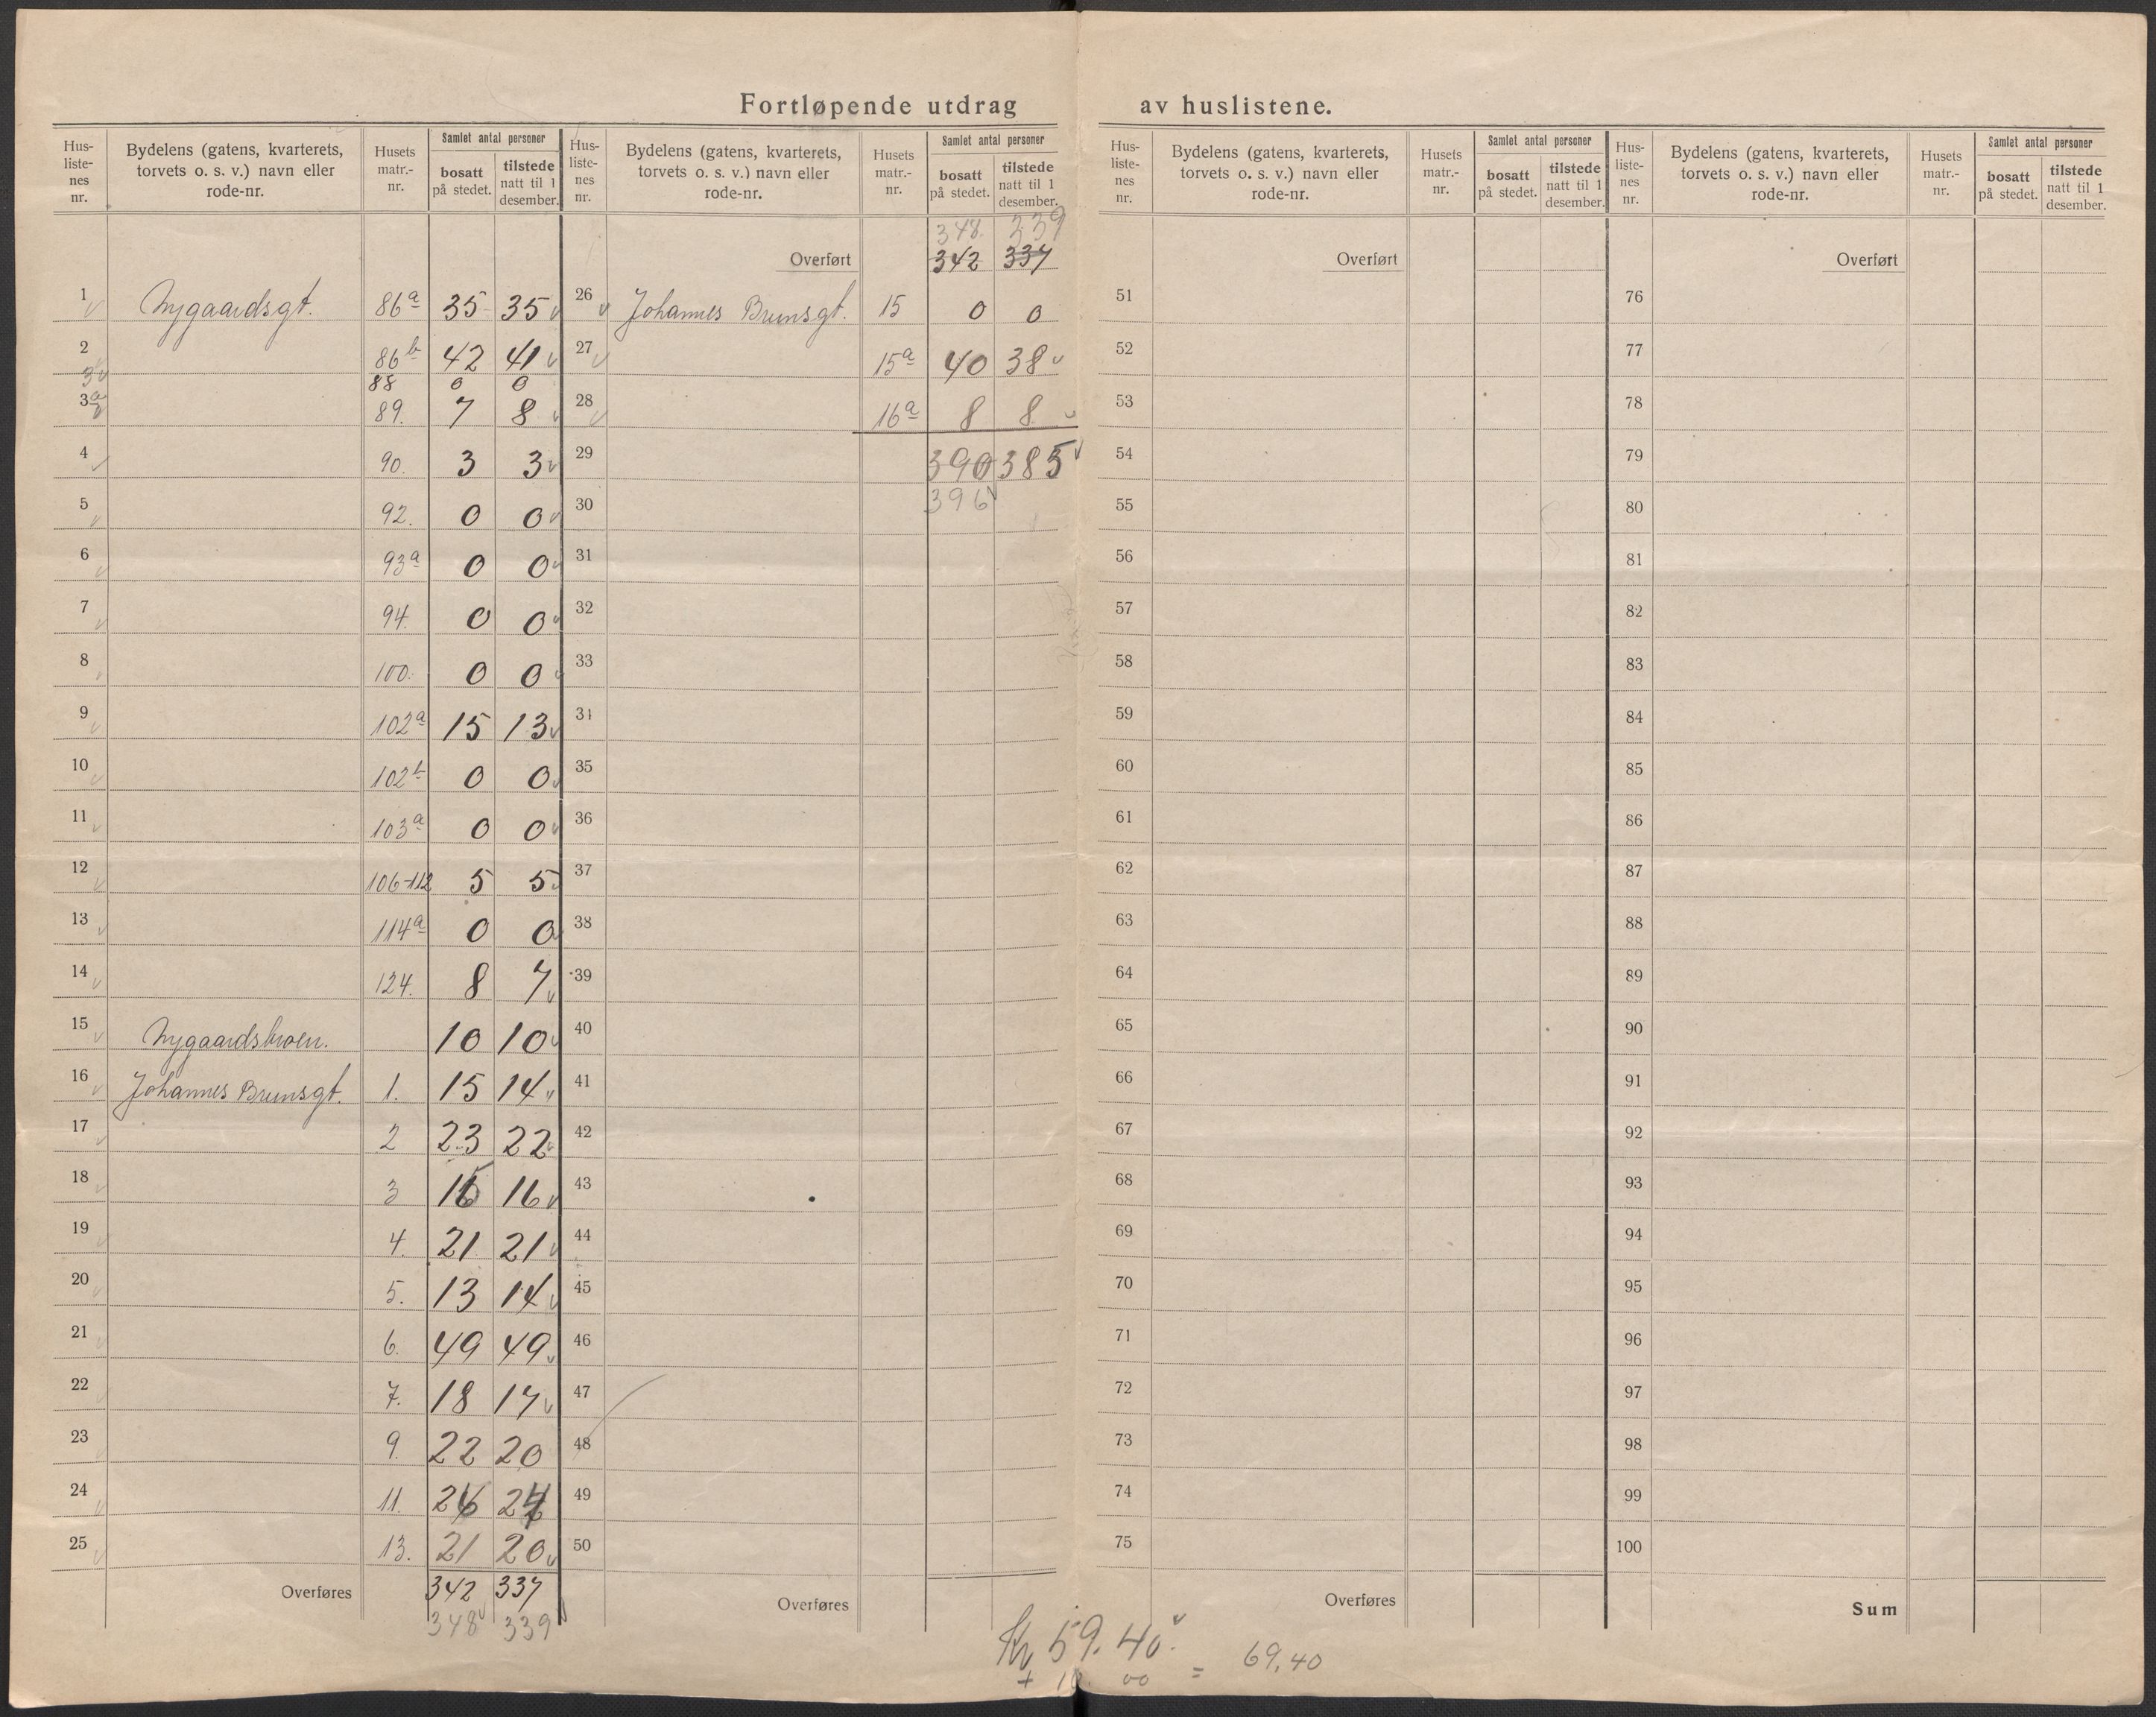 Fortløpende utdrag av huslistene.
Hus-listenes nr. | Bydelens (gatens, kvarterets, torvets o. s. v.) navn eller rode-nr. | Husets matr.-nr. | Samlet antal personer | bosatt på stedet. | tilstede natt til 1 desember.
1 Nygaardsgt. 86a 35 35
2 86b 42 41
3 88 0 0
3a 89. 7 8
4 90. 3 3
5 92. 0 0
6 93a 0 0
7 94. 0 0
8 100. 0 0
9 102a 15 13
10 102b 0 0
11 103a 0 0
12 106-112 5 5
13 114a 0 0
14 124. 8 7
15 Nygaardsbroen. 10 10
16 Johannes Brunsgt. 1. 15 14
17 2 23 22
18 3 16
19 4. 21 21
20 5. 13 14
21 6. 49 49
22 7. 18 17
23 9. 22 20
24 11.
25 13. 21 20
Overføres 342 337
348 339
Hus-listenes nr. | Bydelens (gatens, kvarterets, torvets o. s. v.) navn eller rode-nr. | Husets matr.-nr. | Samlet antal personer | bosatt på stedet. | tilstede natt til 1 desember.
348. 339
Overført 342 337
26 Johannes Brunsgt. 15 0 0
27 15a 40 38
28 16a 8 8
29 390 385
30 396
31
32
33
34
35
36
37
38
39
40
41
42
43
44
45
46
47
48
49
50
Overføres
Hus-listenes nr. | Bydelens (gatens, kvarterets, torvets o. s. v.) navn eller rode-nr. | Husets matr.-nr. | Samlet antal personer | bosatt på stedet. | tilstede natt til 1 desember.
Overført
51
52
53
54
55
56
57
58
59
60
61
62
63
64
65
66
67
68
69
70
71
72
73
74
75
Overføres
Hus-listenes nr. | Bydelens (gatens, kvarterets, torvets o. s. v.) navn eller rode-nr. | Husets matr.-nr. | Samlet antal personer | bosatt på stedet. | tilstede natt til 1 desember.
Overført
76
77
78
79
80
81
82
83
84
85
86
87
88
89
90
91
92
93
94
95
96
97
98
99
100
Sum
Kr 59.40
+ 10.00 = 69,40